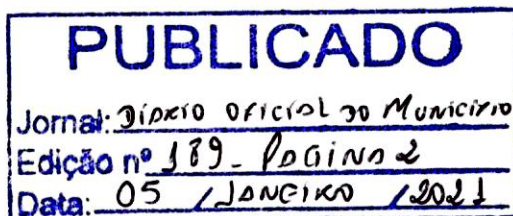 PUBLICADO
Jornal: DIÁRIO OFICIAL DO MUNICIPIO
Edição nº 189 - PAGINA 2
Data: 05 / JANEIRO / 2021